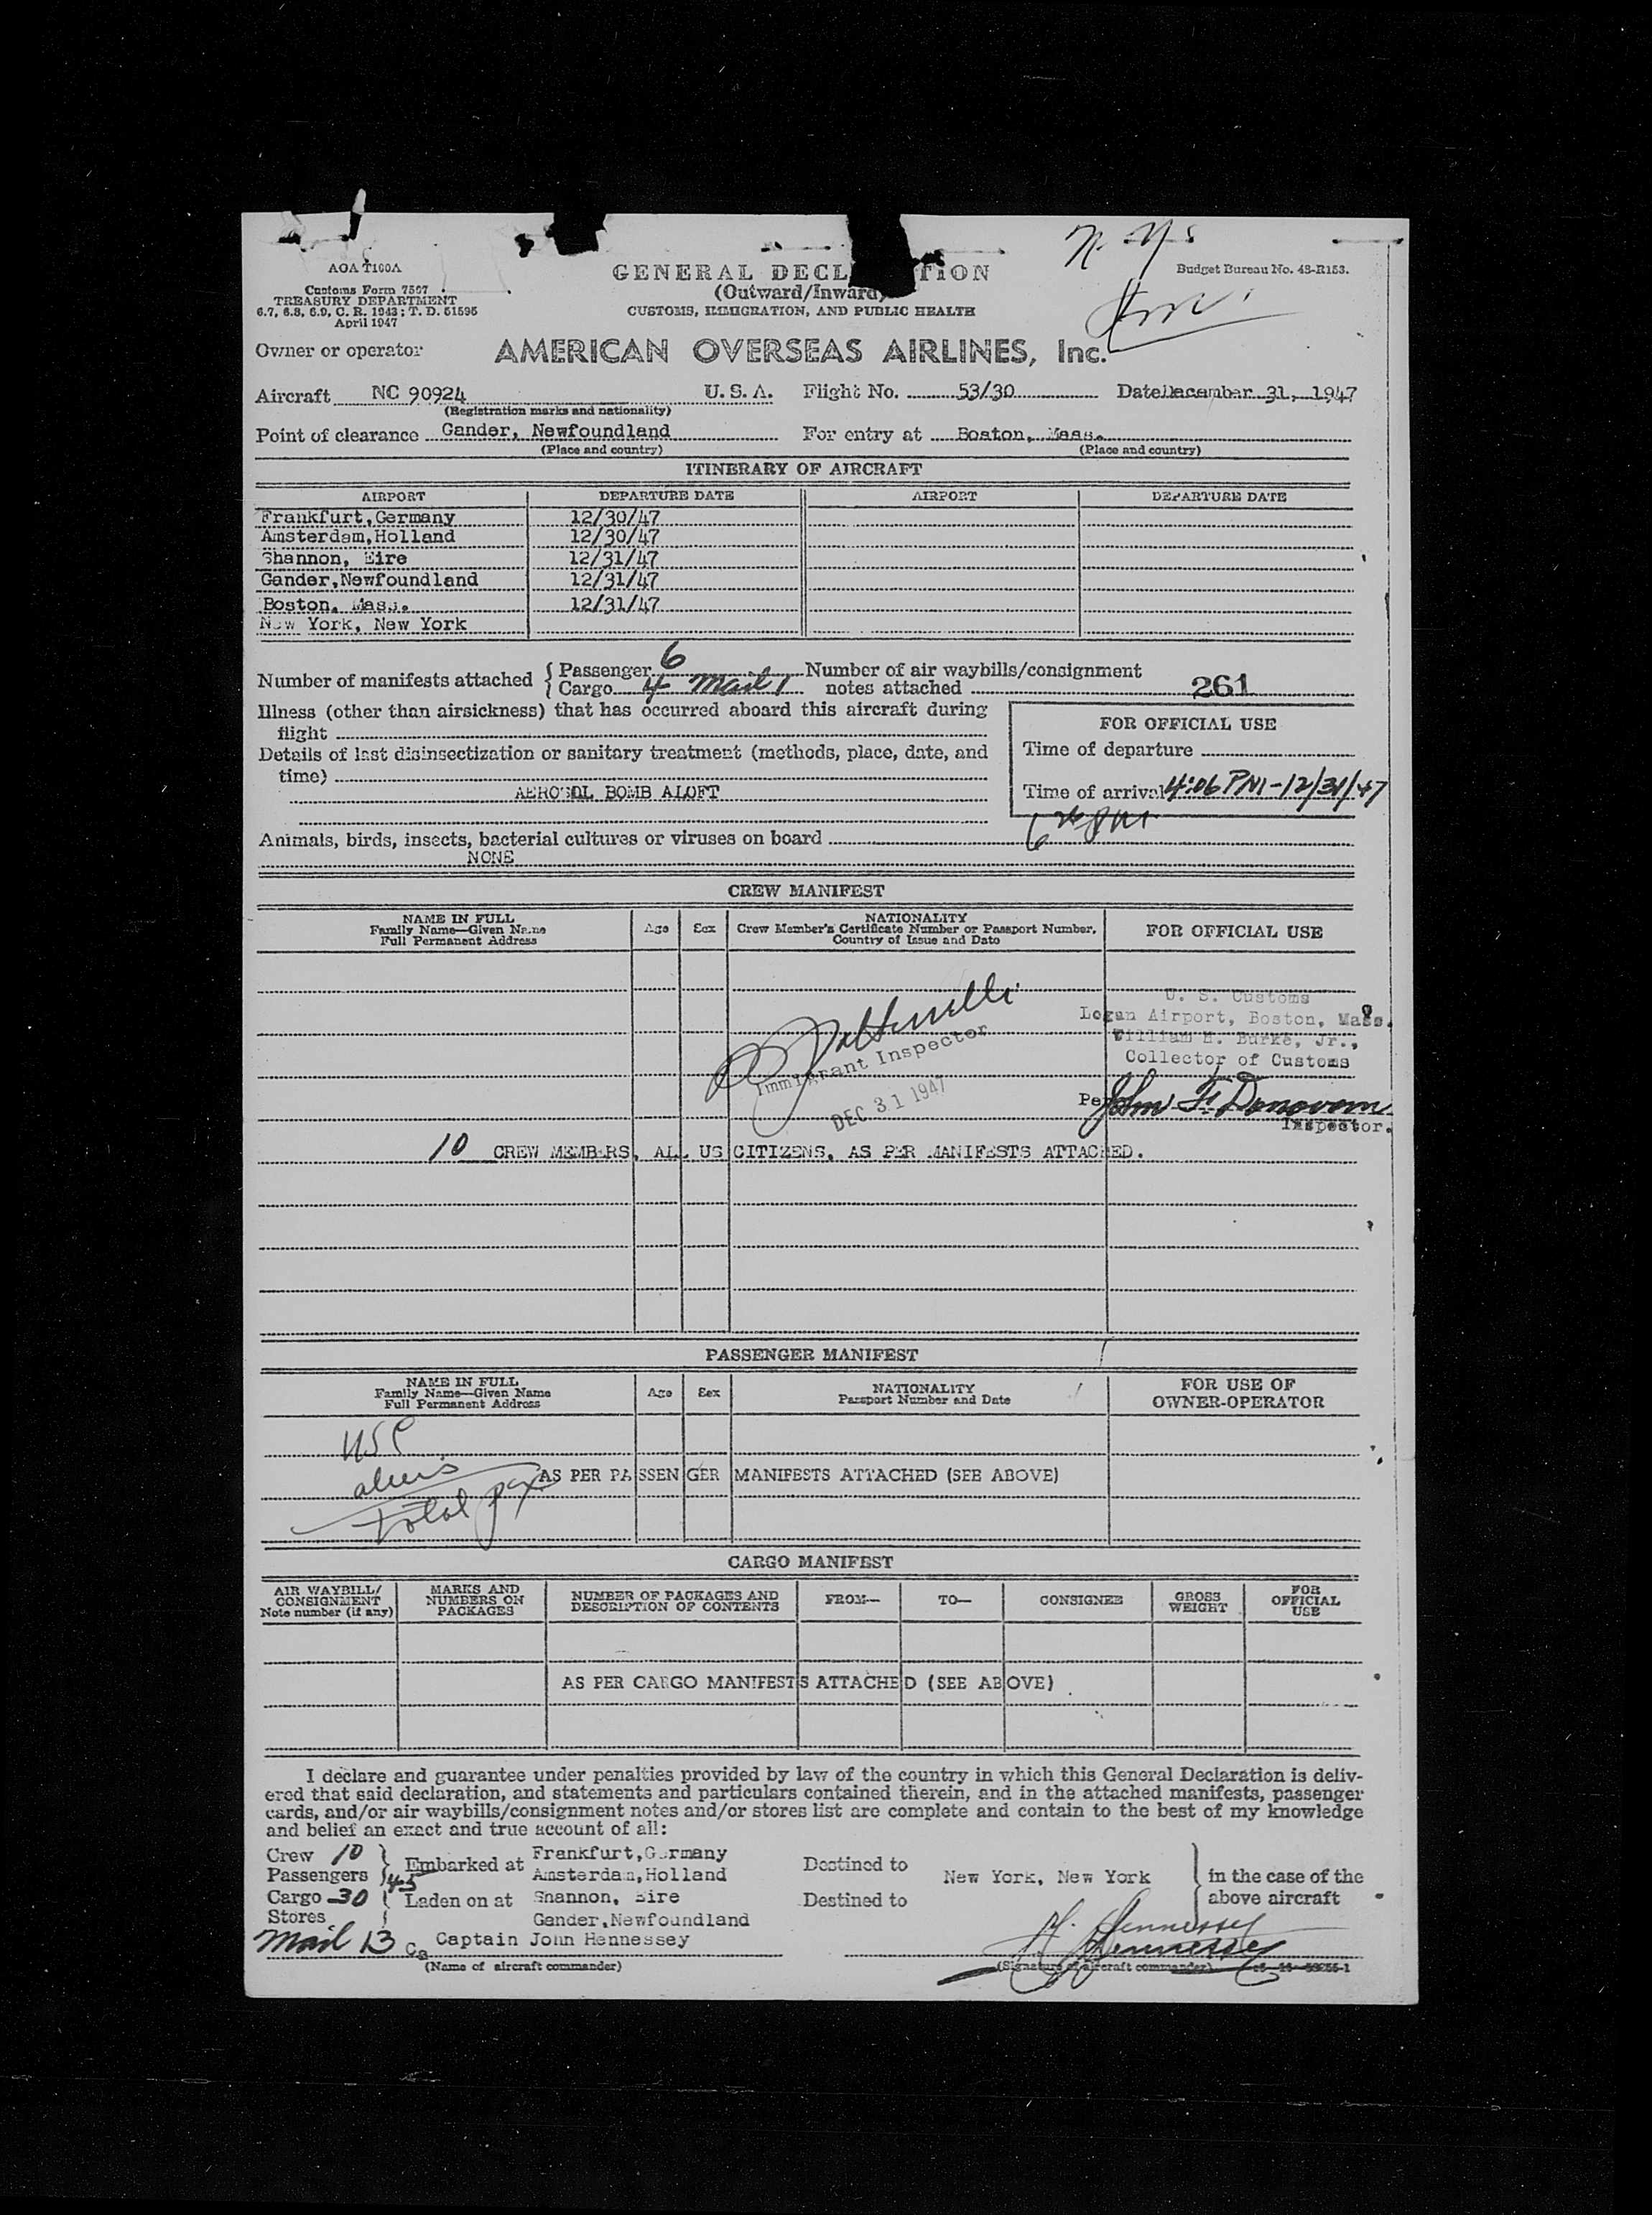 N. Y.
AOA T100A
Customs Form 7507
TREASURY DEPARTMENT
6.7, 6.8, 6.9, C. R. 1943; T. D. 51595
April 1947
GENERAL DECL TION
(Outward/Inward)
CUSTOMS, IMMIGRATION, AND PUBLIC HEALTH
Budget Bureau No. 43-R153.
Owner or operator AMERICAN OVERSEAS AIRLINES, Inc.
Aircraft NC 90924 U. S. A. Flight No. 53/30 Date December 31, 1947
(Registration marks and nationality)
Point of clearance Gander, Newfoundland For entry at Boston, Mass.
(Place and country) (Place and country)
ITINERARY OF AIRCRAFT
AIRPORT DEPARTURE DATE AIRPORT DEPARTURE DATE
Frankfurt,Germany 12/30/47
Amsterdam,Holland 12/30/47
Shannon, Eire 12/31/47
Gander,Newfoundland 12/31/47
Boston, Mass. 12/31/47
New York, New York
Number of manifests attached { Passenger 6 Number of air waybills/consignment
Cargo 4 Mail 1 notes attached 261
Illness (other than airsickness) that has occurred aboard this aircraft during
flight
FOR OFFICIAL USE
Details of last disinsectization or sanitary treatment (methods, place, date, and
time)
Time of departure
AEROSOL BOMB ALOFT
Time of arrival 4:06 PM - 12/31/47
Animals, birds, insects, bacterial cultures or viruses on board
NONE
CREW MANIFEST
NAME IN FULL
Family Name—Given Name
Full Permanent Address
Age Sex
NATIONALITY
Crew Member's Certificate Number or Passport Number,
Country of Issue and Date
FOR OFFICIAL USE
U. S. Customs
Logan Airport, Boston, Mass.
William H. Burke, Jr.,
Collector of Customs
Per John F. Donovan
Inspector.
Immigrant Inspector
DEC 31 1947
10 CREW MEMBERS, ALL US CITIZENS, AS PER MANIFESTS ATTACHED.
PASSENGER MANIFEST
NAME IN FULL
Family Name—Given Name
Full Permanent Address
Age Sex
NATIONALITY
Passport Number and Date
FOR USE OF
OWNER-OPERATOR
USC
aliens
total pax
AS PER PASSENGER MANIFESTS ATTACHED (SEE ABOVE)
CARGO MANIFEST
AIR WAYBILL/
CONSIGNMENT
Note number (if any)
MARKS AND
NUMBERS ON
PACKAGES
NUMBER OF PACKAGES AND
DESCRIPTION OF CONTENTS
FROM— TO— CONSIGNEE
GROSS
WEIGHT
FOR
OFFICIAL
USE
AS PER CARGO MANIFESTS ATTACHED (SEE ABOVE)
I declare and guarantee under penalties provided by law of the country in which this General Declaration is deliv-
ered that said declaration, and statements and particulars contained therein, and in the attached manifests, passenger
cards, and/or air waybills/consignment notes and/or stores list are complete and contain to the best of my knowledge
and belief an exact and true account of all:
Crew 10
Passengers 45
Cargo 30
Stores
Mail 13
Embarked at
Laden on at
Frankfurt,Germany
Amsterdam,Holland
Shannon, Eire
Gander,Newfoundland
Destined to
Destined to
New York, New York
in the case of the
above aircraft
Captain John Hennessey
(Name of aircraft commander)
Hennessey
Hennessey
(Signature of aircraft commander)